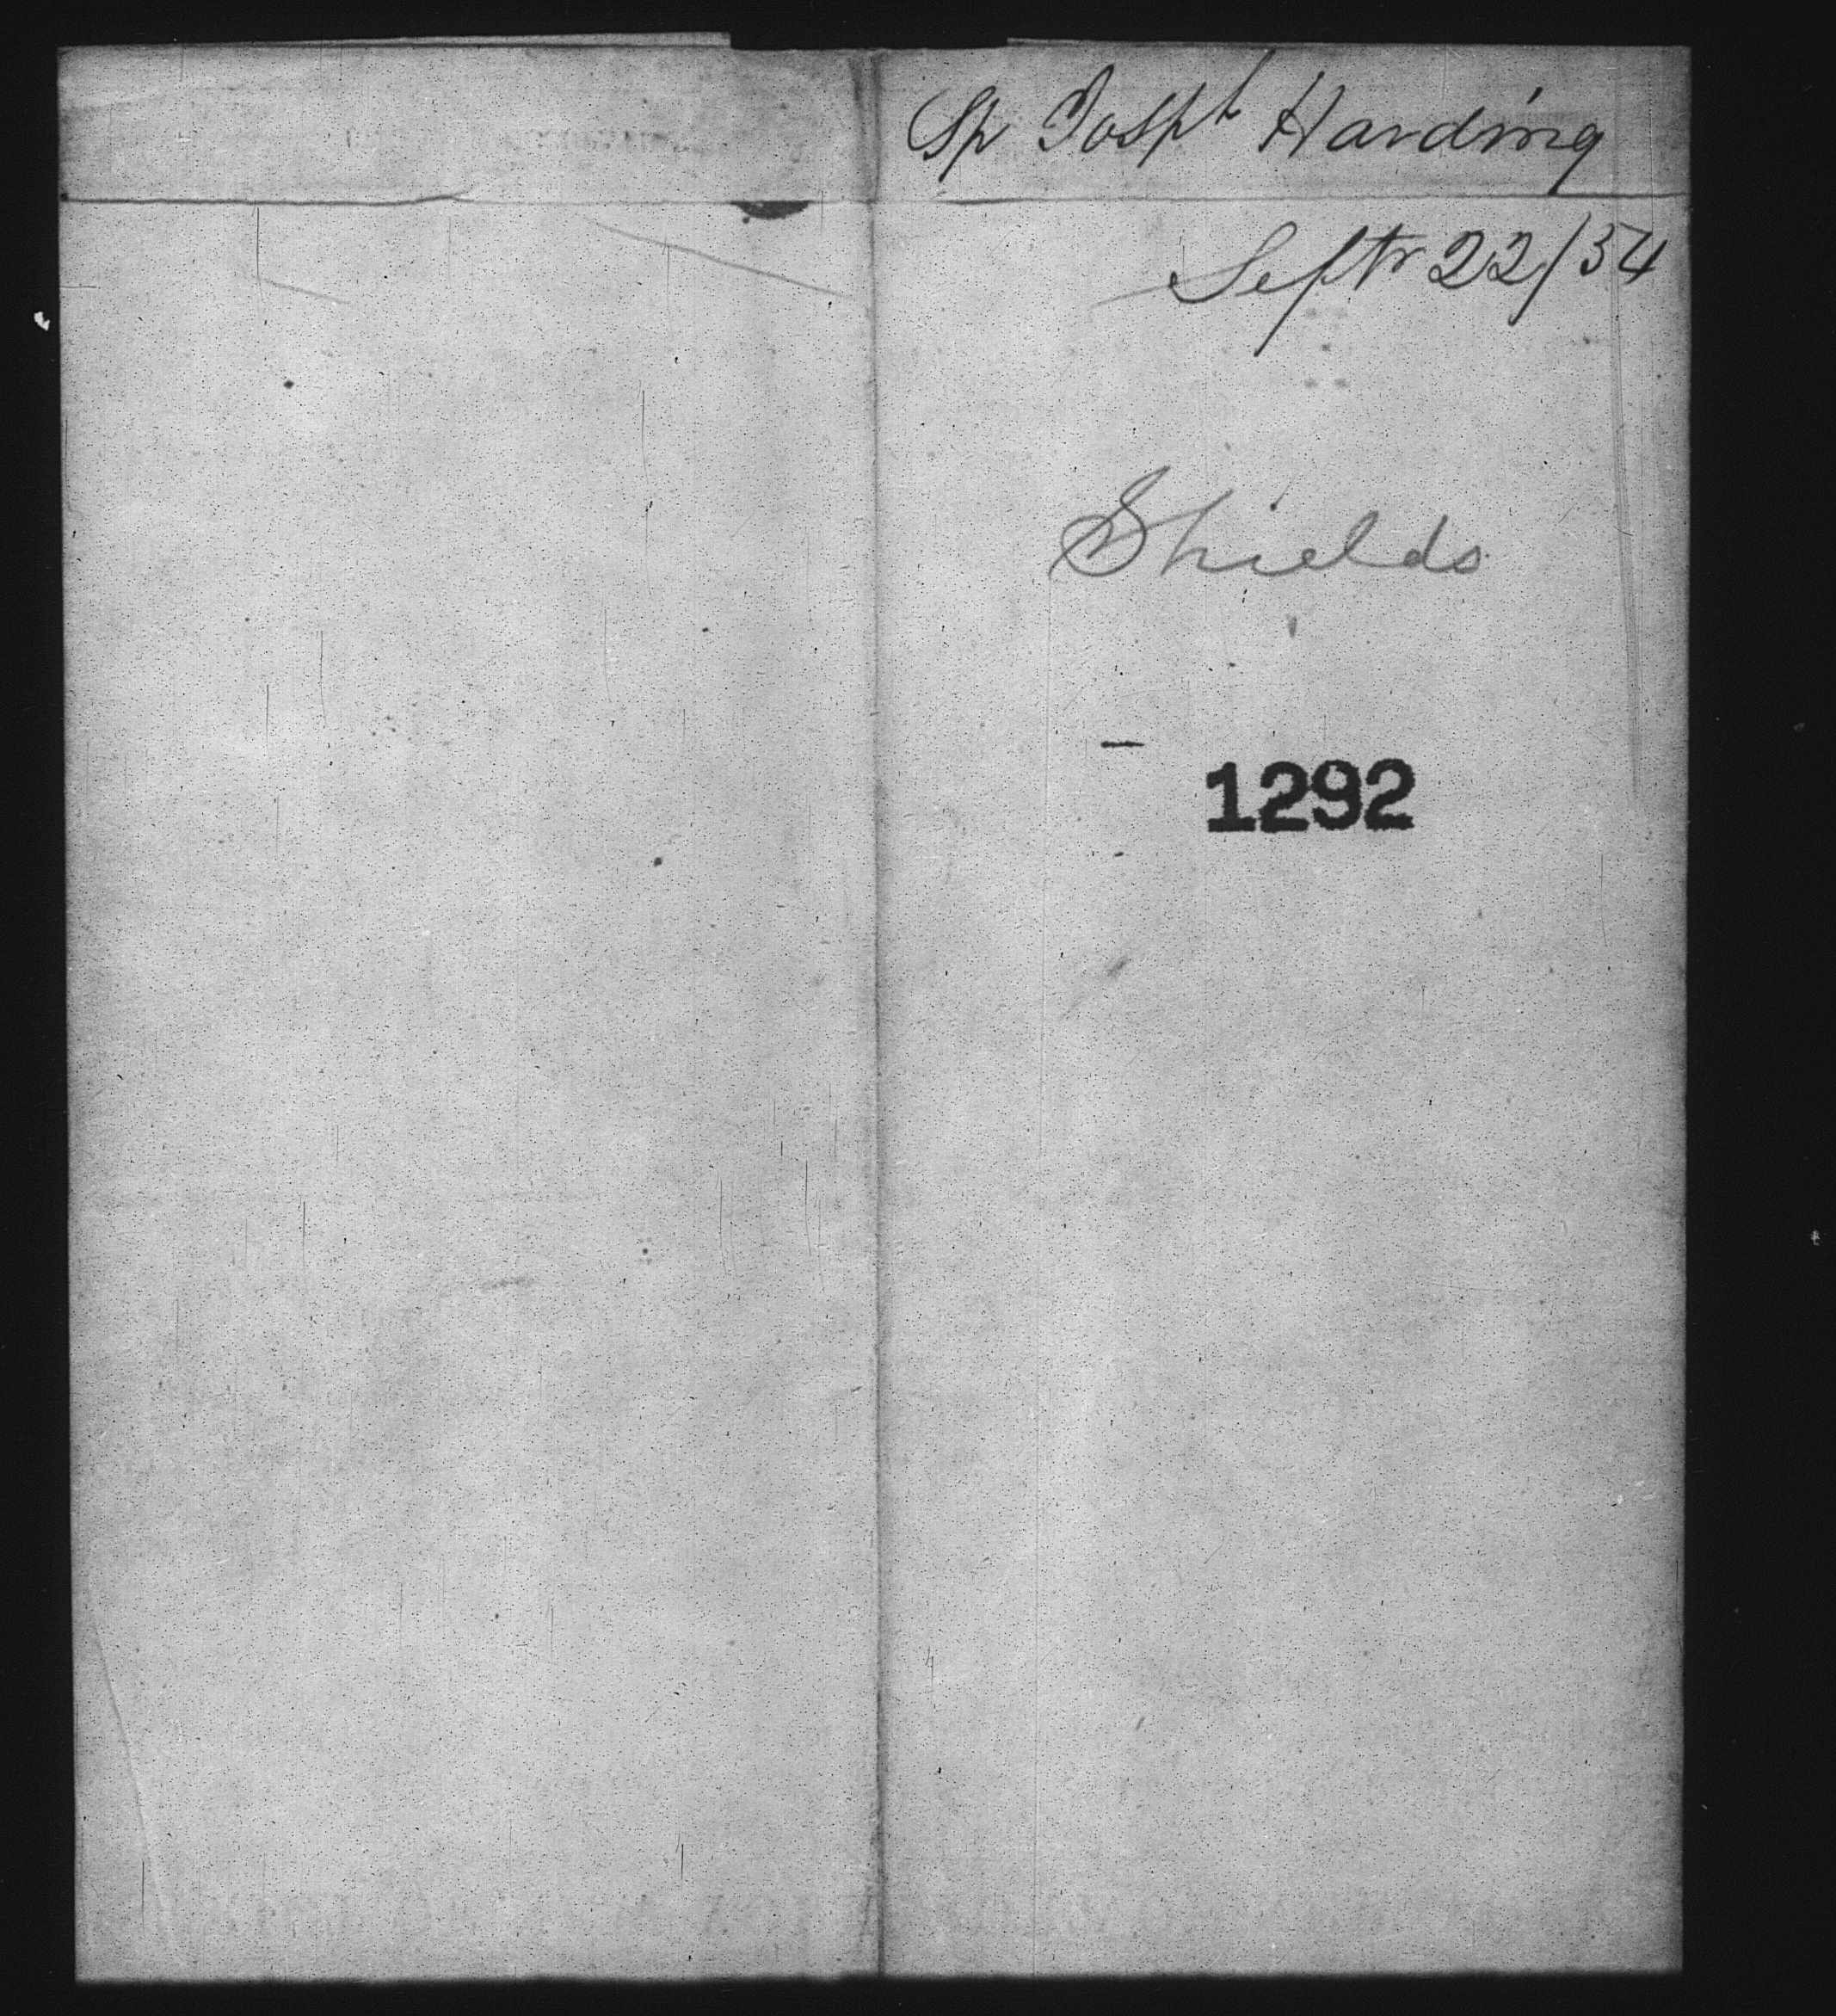 Sp Josph Harding
Septr 22/54
Shields
1292